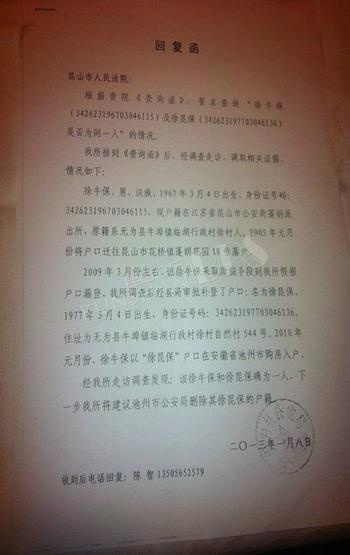 回复函
昆山市人民法院：
根据贵院《查询函》，要求查询“徐牛保
（342623196703046115）及徐昆保（342623197703046136）
是否为同一人”的情况。
我所接到《查询函》后，经调查走访、调取相关证据，
情况如下：
徐牛保，男，汉族，1967年3月4日出生，身份证号码：
342623196703046115，现户籍在江苏省昆山市公安局蓬朗派
出所，原籍系无为县牛埠镇临湖行政村徐村人，2005年元月
份将户口迁往昆山市花桥镇蓬朗花园18号落户。
2009年3月份左右，该徐牛保采取欺骗手段到我所假报
户口漏登，我所调查后经县局审批补登了户口：名为徐昆保，
1977年3月4日出生，身份证号码：342623197703046136，
住址为无为县牛埠镇临湖行政村徐村自然村544号。2010年
元月份，徐牛保以“徐昆保”户口在安徽省池州市购房入户。
经我所走访调查发现：该徐牛保和徐昆保确为一人，下
一步我所将建议池州市公安局删除其徐昆保的户籍。
二〇一三年一月八日
收到后电话回复：陈智 13505652579